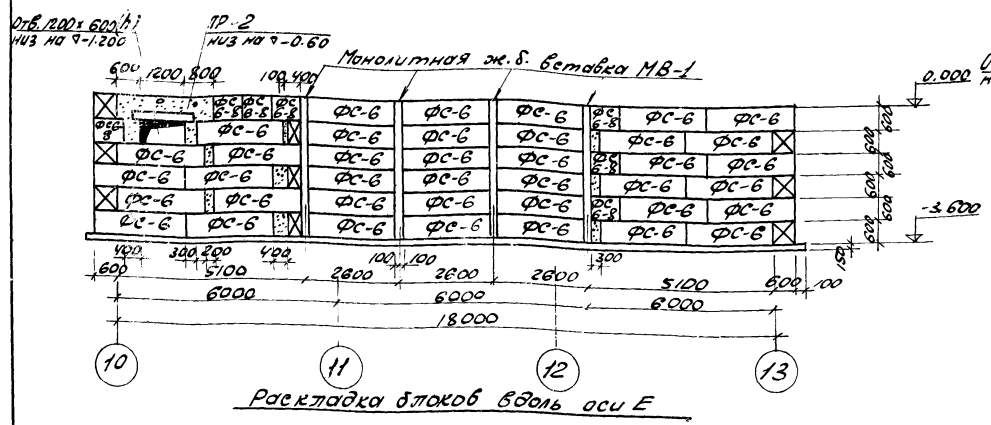 Отв. 1200 x 600(h)
низ на ▽-1.200
ПР-2
низ на ▽-0.60
Монолитная ж.б. вставка МВ-1
0.000
600 1200 800 100 400
ФС 6-8 ФС 6-8 ФС 6-8 ФС-6 ФС-6 ФС-6 ФС 6-8 ФС-6 ФС-6
ФС6-8 ФС-6 ФС-6 ФС-6 ФС-6 ФС-6 ФС-6
ФС-6 ФС-6 ФС-6 ФС-6 ФС-6 ФС 6-8 ФС-6 ФС-6
ФС-6 ФС-6 ФС-6 ФС-6 ФС-6 ФС-6 ФС-6
ФС-6 ФС-6 ФС-6 ФС-6 ФС-6 ФС 6-8 ФС-6 ФС-6
ФС-6 ФС-6 ФС-6 ФС-6 ФС-6 ФС-6 ФС-6
600 600 600 600 600
-3.600
150
400 300 200 400 100 100 300
600 5100 2600 2600 2600 5100 600 100
6000 6000 6000
18000
10 11 12 13
Раскладка блоков вдоль оси Е